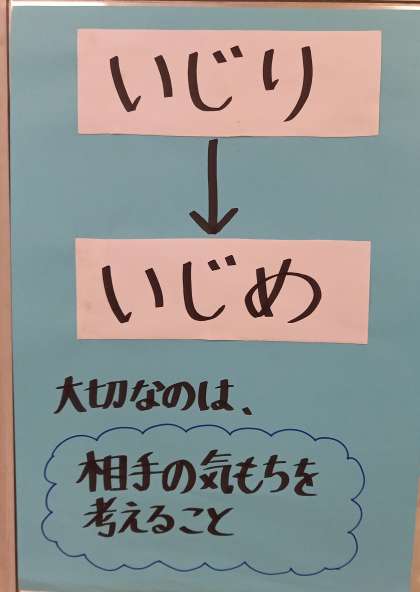 いじり
↓
いじめ
大切なのは、
相手の気もちを
考えること